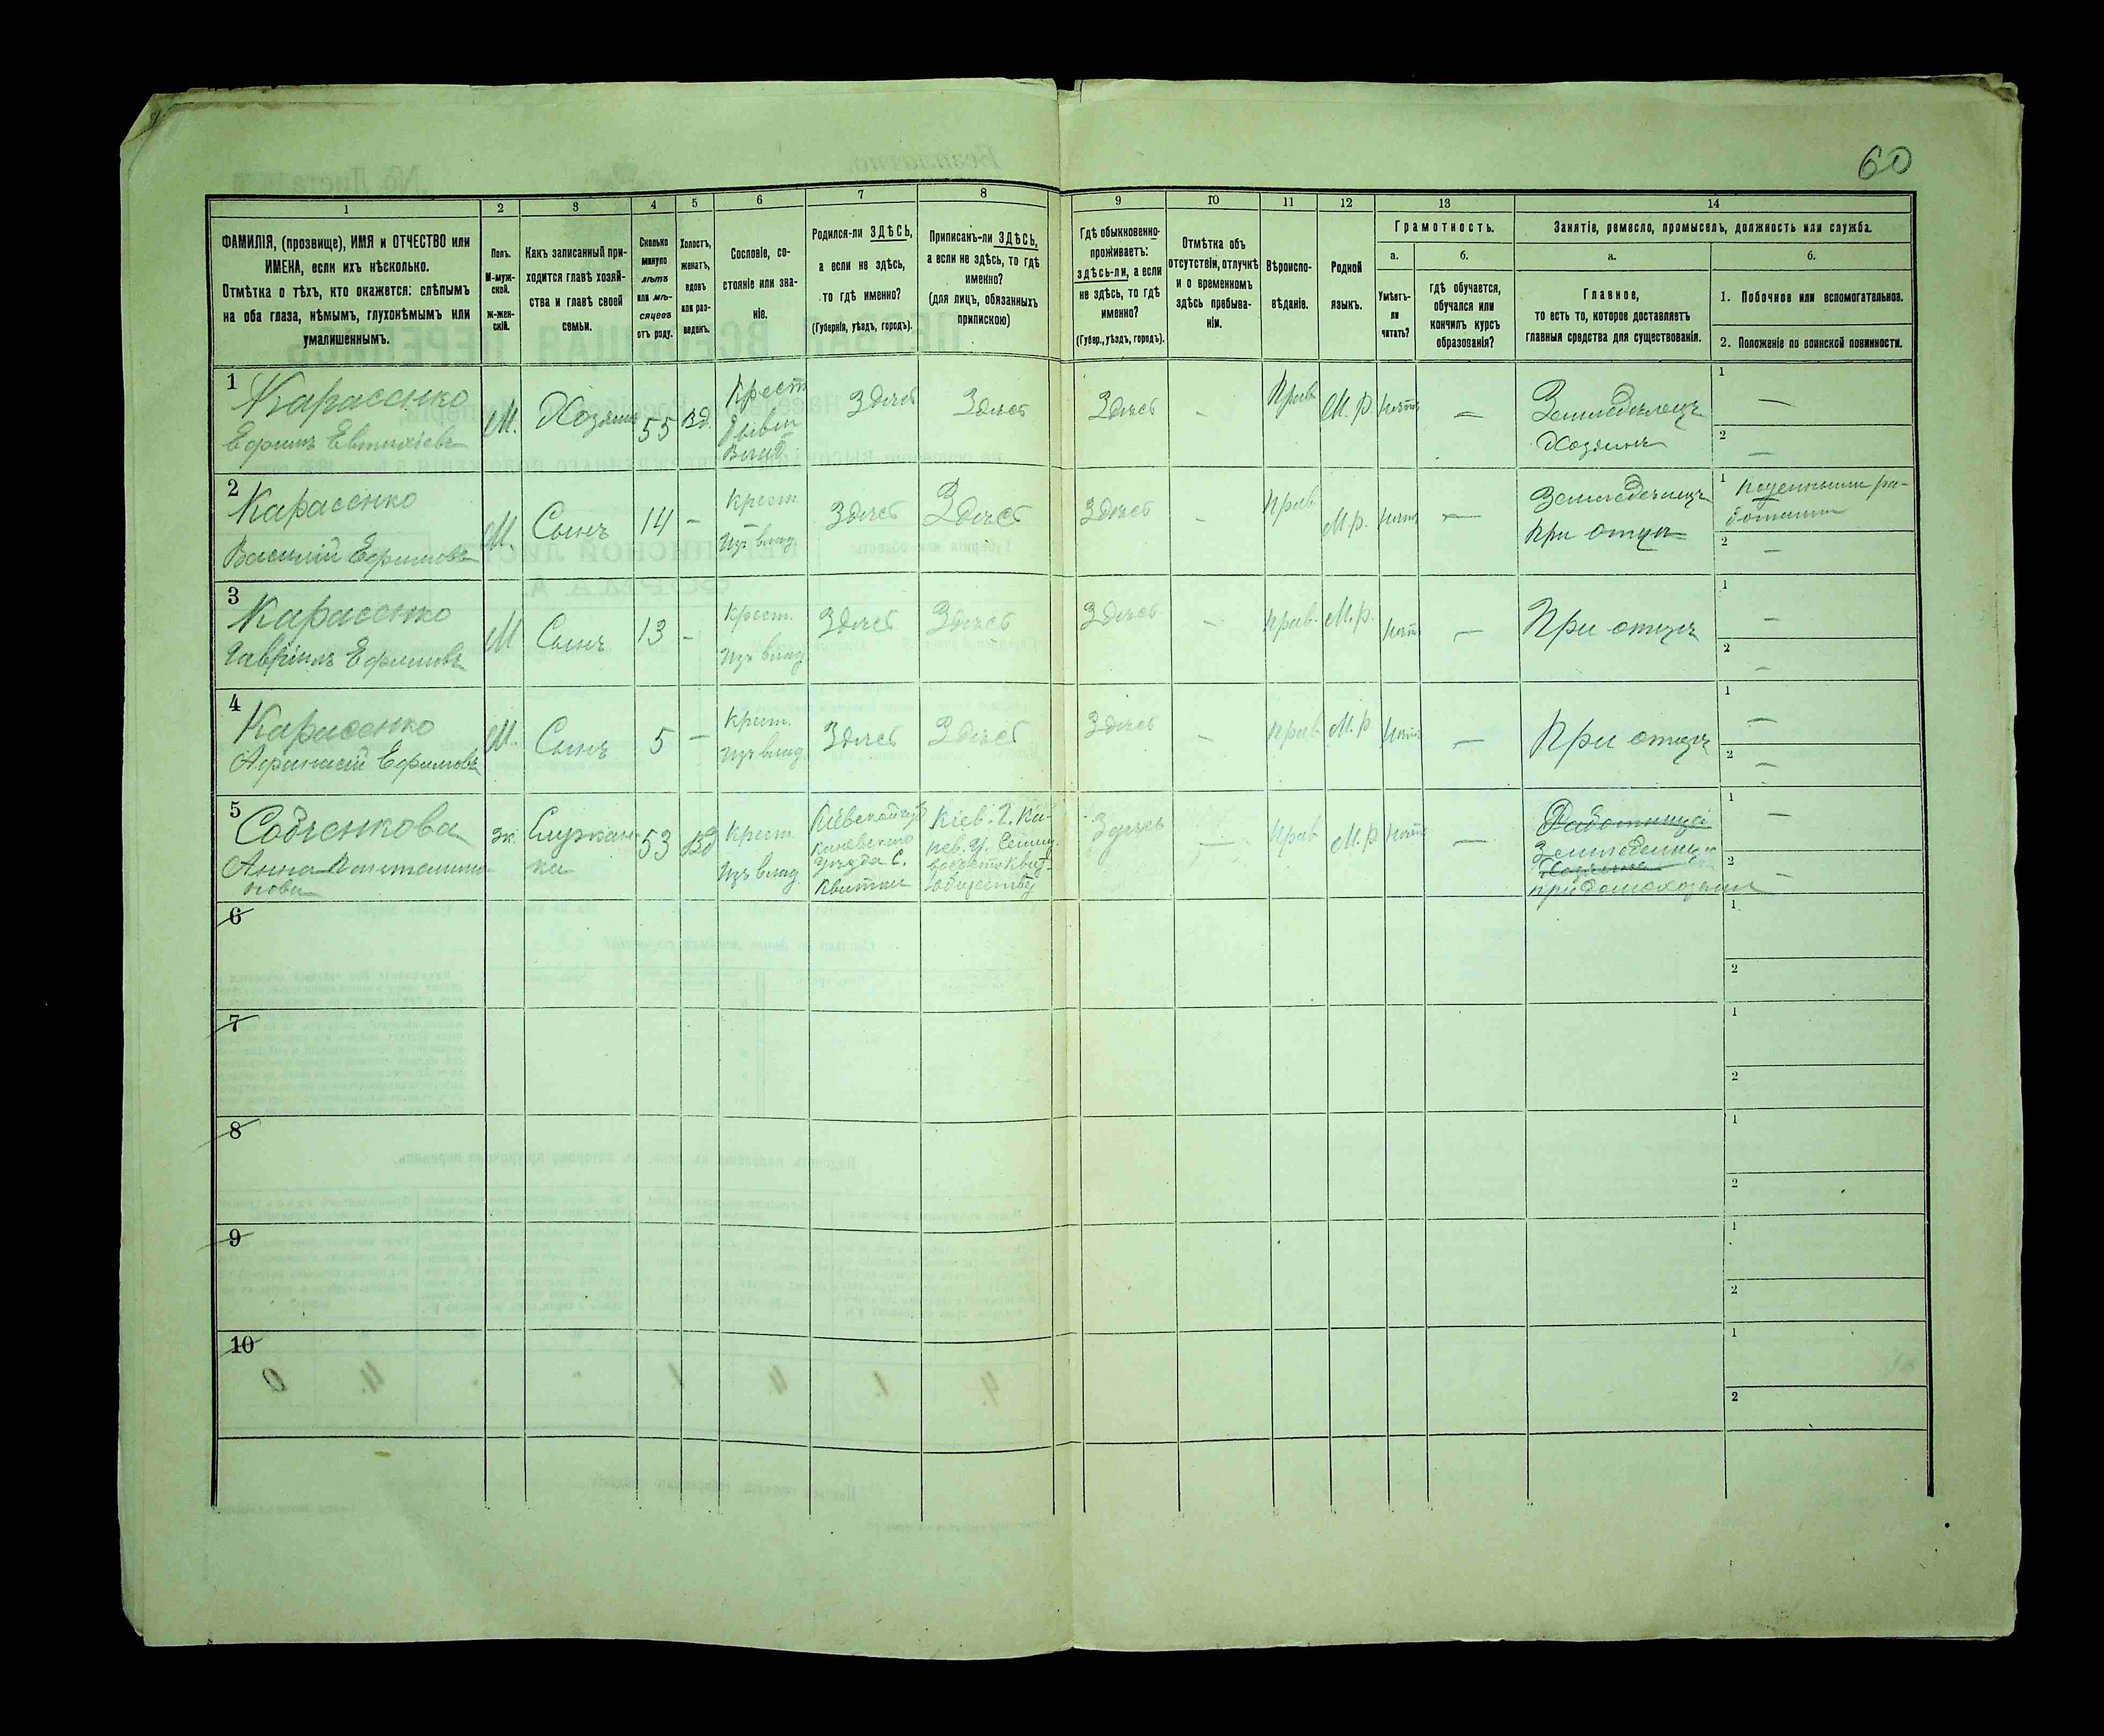 60
1
2
3
4
5
6
7
8
9
10
11
12
13
14
ФАМИЛІЯ, (прозвище), ИМЯ и ОТЧЕСТВО или
ИМЕНА, если ихъ нѣсколько.
Отмѣтка о тѣхъ, кто окажется: слѣпымъ
на оба глаза, нѣмымъ, глухонѣмымъ или
умалишеннымъ.
Полъ.
М-муж-
ской.
Ж-жен-
скій.
Какъ записанный при-
ходится главѣ хозяй-
ства и главѣ своей
семьи.
Сколько
минуло
лѣтъ
или мѣ-
сяцевъ
отъ роду.
Холостъ,
женатъ,
вдовъ
или раз-
веденъ.
Сословіе, со-
стояніе или зва-
ніе.
Родился-ли ЗДѢСЬ,
а если не здѣсь,
то гдѣ именно?
(Губернія, уѣздъ, городъ).
Приписанъ-ли ЗДѢСЬ,
а если не здѣсь, то гдѣ
именно?
(для лицъ, обязанныхъ
припискою)
Гдѣ обыкновенно
проживаетъ:
здѣсь-ли, а если
не здѣсь, то гдѣ
именно?
(Губер., уѣздъ, городъ).
Отмѣтка объ
отсутствіи, отлучкѣ
и о временномъ
здѣсь пребыва-
ніи.
Вѣроиспо-
вѣданіе.
Родной
языкъ.
Грамотность.
а.
Умѣетъ-
ли
читать?
б.
гдѣ обучается,
обучался или
кончилъ курсъ
образованія?
Занятіе, ремесло, промыселъ, должность или служба.
а.
Главное,
то есть то, которое доставляетъ
главныя средства для существованія.
б.
1. Побочное или вспомогательное.
2. Положеніе по воинской повинности.
1
Карасенко
Ефимъ Евтихіевъ
М.
Хозяинъ
55
Вд.
Крест
бывш
Влад
Здѣсь
Здѣсь
Здѣсь
-
Прав
М. р.
нѣтъ
—
Земледѣлецъ
Хозяинъ
1 —
2 —
2
Карасенко
Василій Ефимовъ
М
Сынъ
14
-
Крест
Изъ влад.
Здѣсь
Здѣсь
Здѣсь
-
Прав
М. р.
нѣтъ
—
Земледѣлецъ
При отцѣ
1
2 —
3
Карасенко
Гавріилъ Ефимовъ
М
Сынъ
13
-
Крест.
Изъ влад
Здѣсь
Здѣсь
Здѣсь
-
Прав.
М. р.
нѣтъ
—
При отцѣ
1 —
2 —
4
Карасенко
Афанасій Ефимовъ
М.
Сынъ
5
—
Крест.
Изъ влад
Здѣсь
Здѣсь
Здѣсь
-
Прав
М. р
нѣтъ
—
При отцѣ
1 —
2 —
5
Собченкова
Анна
ж.
Служан-
ка
53
Вд
Крест.
Изъ влад.
Кіевской губ
Каневского
уѣзда с.
Квитки
Кіев. г. Ка-
нев. у.
Здѣсь
—
Прав
М. р
нѣтъ
—
Работница
1 —
2 —
6
1
2
7
1
2
8
1
2
9
1
2
10
1
2